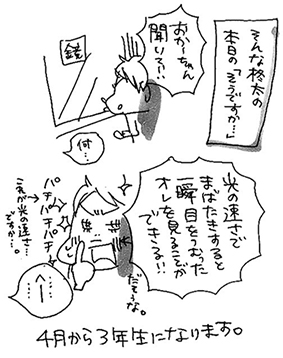 そんな柊太の
本日の「そうですか…」
おかーちゃん
聞いてろ!!
鏡
何…
光の速さで
まばたきすると
一瞬目をつむった
オレを見ることが
できる!!
だそうな。
パチ
パチ
パチ
パチ
これが光の速さ…
ですか…。
…へー
4月から3年生になります。